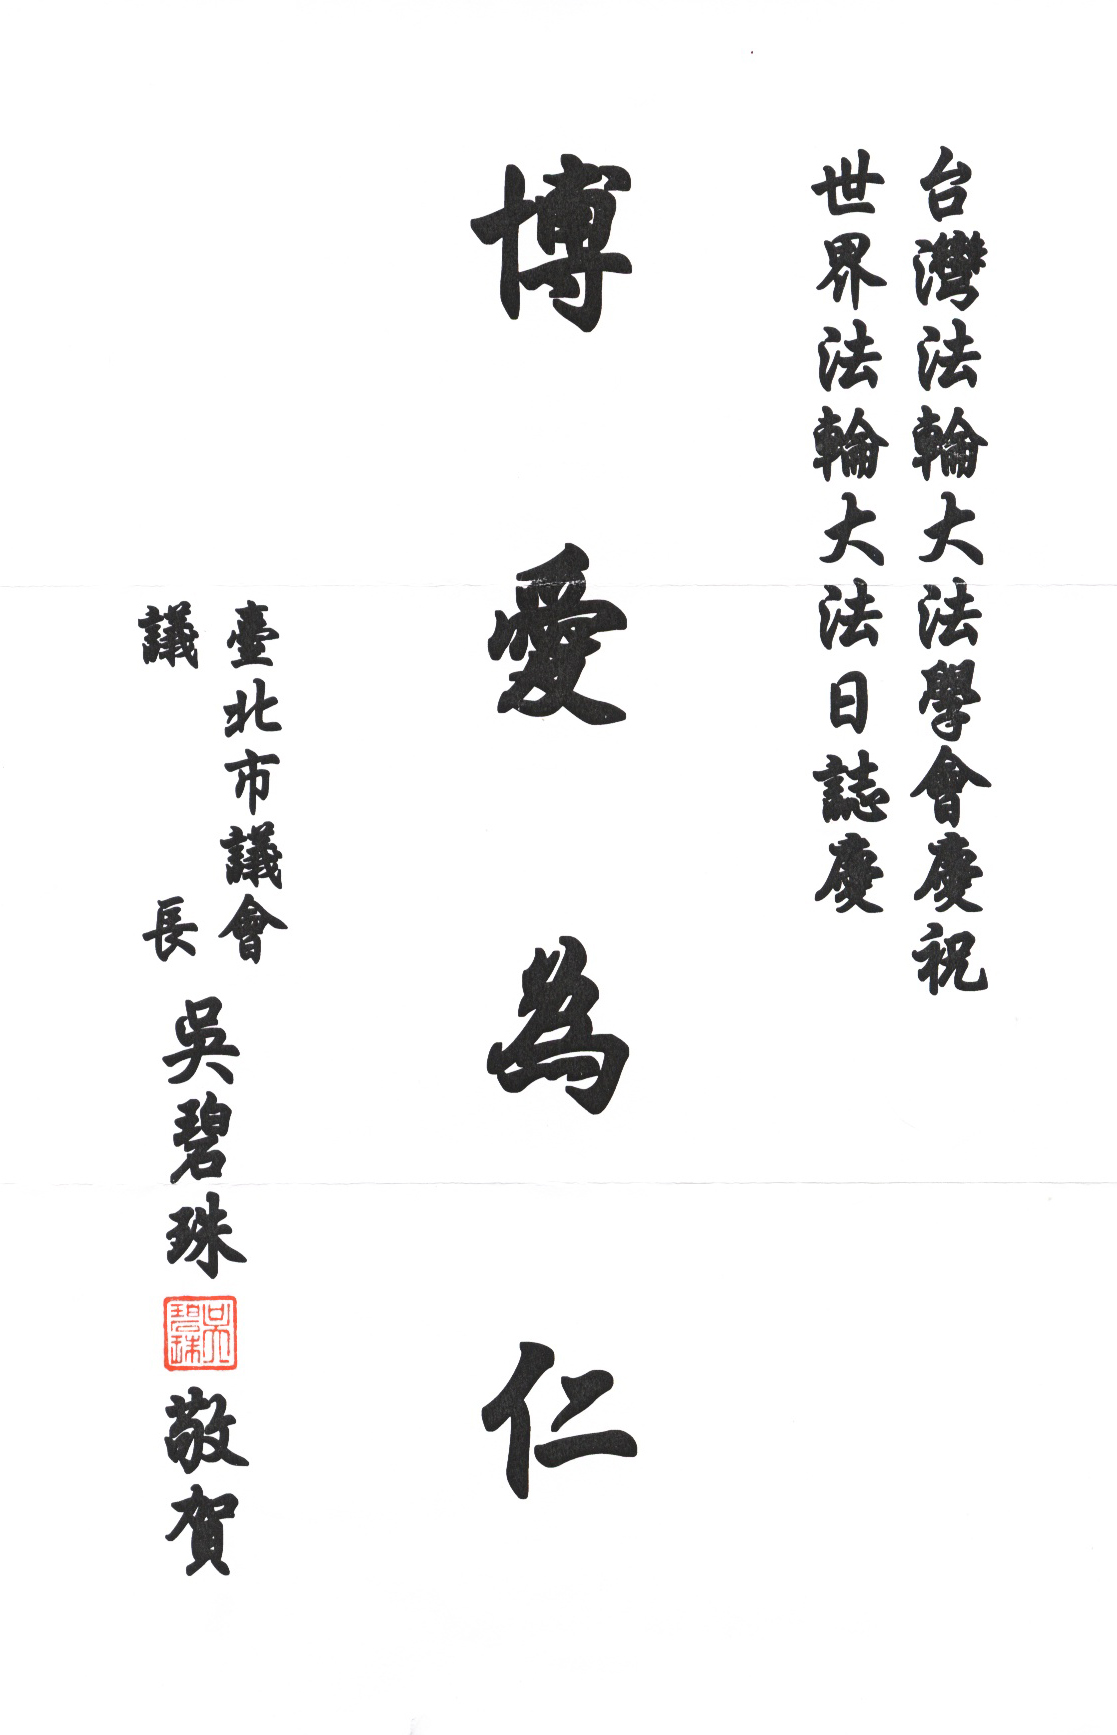 台灣法輪大法學會慶祝
世界法輪大法日誌慶
博愛為仁
臺北市議會
議長
吳碧珠
吳碧珠
敬賀